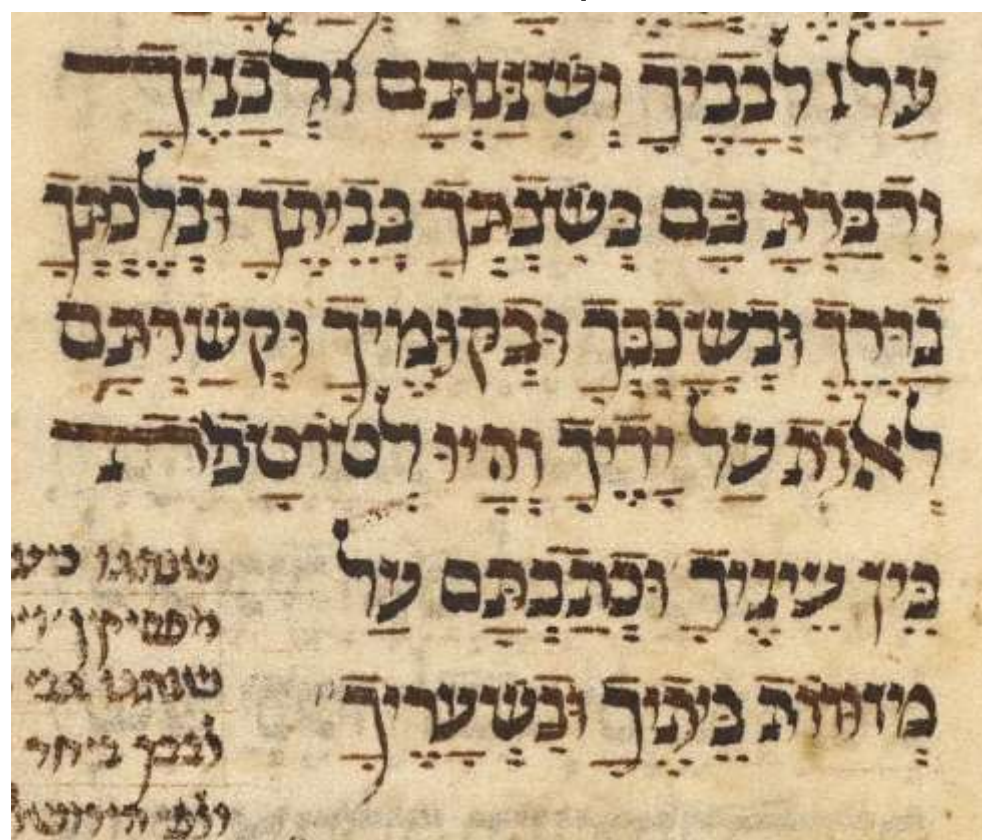 על לבביך ושננתם לבניך
ודברת בם בשבתך בביתך ובלכתך
בדרך ובשכבך ובקומיך וקשרתם
לאות על ידיך והיו לטוטפת
בין עיניך וכתבתם על
מזוזות ביתיך ובשעריך
שנהגו
שנהגו גבי